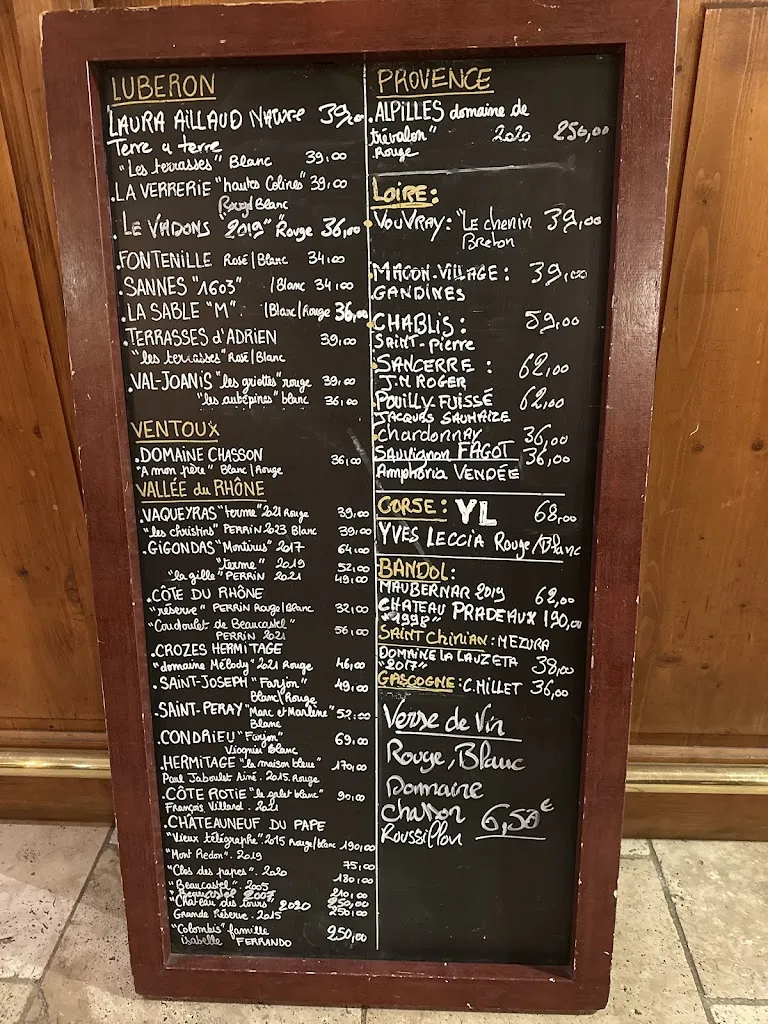 LUBERON
LAURA AILLAUD Nature 39,00
Terre a terre
"Les terrasses" Blanc 39,00
.LA VERRERIE "hautes Colines" 39,00
Rouge/Blanc
.LE VADONS "2019" Rouge 36,00
.FONTENILLE Rosé/Blanc 34,00
.SANNES "1603" /Blanc 34,00
.LA SABLE "M". /Blanc/Rouge 36,00
.TERRASSES d'ADRIEN 39,00
"les terrasses" Rosé/Blanc
.VAL-JOANIS "les griottes" rouge 39,00
"les aubépines" blanc 36,00
VENTOUX
.DOMAINE CHASSON 36,00
"A mon père" Blanc/Rouge
VALLÉE du RHÔNE
.VAQUEYRAS "terme" 2021 Rouge 39,00
"les christins" PERRIN 2023 Blanc 39,00
.GIGONDAS "Montirus" 2017 64,00
"terme" 2019 52,00
"la gille" PERRIN 2021 49,00
.CÔTE DU RHÔNE
"réserve" PERRIN Rouge/Blanc 32,00
"Coudoulet de Beaucastel" 56,00
PERRIN 2021
.CROZES HERMITAGE
"domaine Mélody" 2021 Rouge 46,00
.SAINT-JOSEPH "Farjon" 49,00
Blanc/Rouge
.SAINT-PERAY "Marc et Marlène" 52,00
Blanc
.CONDRIEU "Farjon" 69,00
Viognier Blanc
.HERMITAGE "la maison bleue" 170,00
Paul Jaboulet Ainé. 2015. Rouge
.CÔTE ROTIE "le galet blanc" 90,00
François Villard. 2021
.CHÂTEAUNEUF DU PAPE
"Vieux télégraphe". 2015 Rouge/blanc 190,00
"Mont Redon". 2019 75,00
"Clos des papes". 2020 180,00
"Beaucastel". 2005 210,00
"Beaucastel" 2007 250,00
"Chateau des tours" 2020 250,00
Grande Réserve. 2015
"Colombis" famille 250,00
isabelle FERRANDO
PROVENCE
.ALPILLES domaine de
trévalon" 2020 250,00
Rouge
LOIRE:
VOUVRAY: "Le chenin 39,00
Breton
MACON-VILLAGE: 39,00
GANDINES
CHABLIS: 59,00
SAINT-Pierre
SANCERRE: 62,00
J.N ROGER
POUILLY FUISSÉ 62,00
JACQUES SAUMAIZE
Chardonnay 36,00
Sauvignon FAGOT 36,00
Amphoria VENDÉE
CORSE: YL 68,00
YVES LECCIA Rouge/Blanc
BANDOL:
MAUBERNAR 2019 62,00
CHATEAU PRADEAUX 190,00
"1998"
SAINT Chinian: MEZURA
DOMAINE LA LAUZETA 38,00
"2017"
GASCOGNE: C.HILLET 36,00
Verre de Vin
Rouge, Blanc
Domaine
Chasson 6,50€
Roussillon